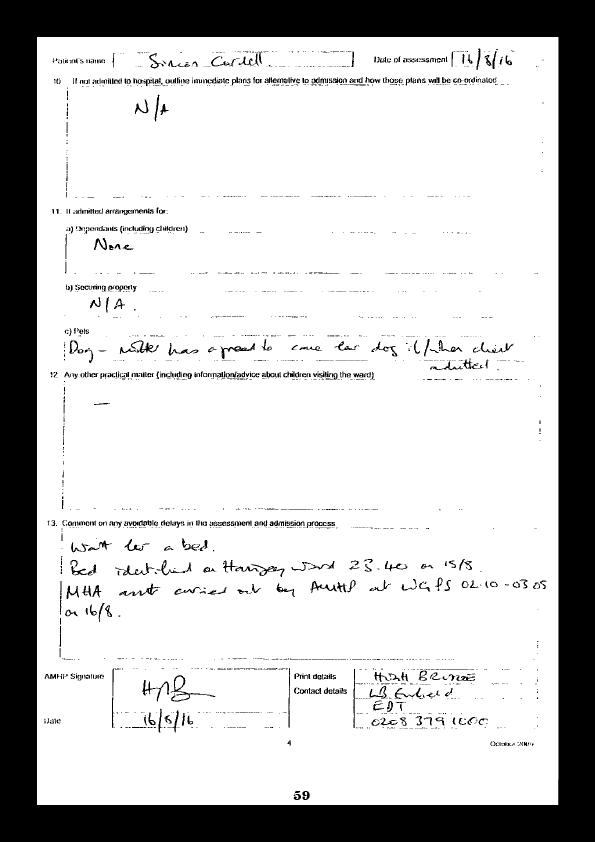 Patient's name Simon Cordell Date of assessment 16/8/16
10 If not admitted to hospital, outline immediate plans for alternative to admission and how those plans will be co-ordinated
N/A
11. If admitted arrangements for:
a) Dependants (including children)
None
b) Securing property
N/A.
c) Pets
Dog - mother has agreed to care for dog if/when client
admitted.
12 Any other practical matter (including information/advice about children visiting the ward)
—
13. Comment on any avoidable delays in the assessment and admission process
Wait for a bed.
Bed identified on Haringey Ward 23.40 on 15/8.
MHA asst carried out by AMHP at WGPS 02.10 - 03.05
on 16/8.
AMHP Signature Print details
Contact details LB Enfield
EDT
Date 16/8/16 0208 379 1000
4 October 2009
59